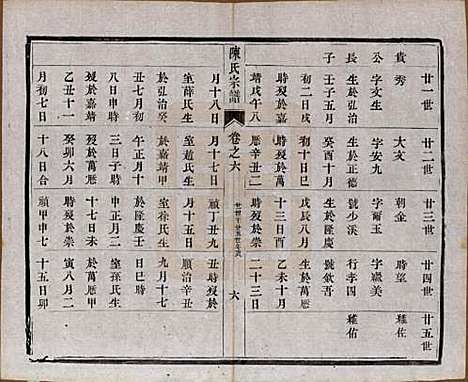 廿一世 廿二世 廿三世 廿四世 廿五世
貴秀 大文 朝金 時望 雞佐
公字文生 字安九 字爾玉 字藏美
長生於弘治 生於正德 號少溪 行孝四 雞佑
子壬子五月 癸酉十月 生於隆慶 號欽吾
初二日戌 初十日巳 戊辰八月 生於萬曆
時歿於嘉 時歿於萬 十三日酉 乙未十月
靖戊午八 曆辛丑二 時歿於崇 二十三日
陳氏宗譜 卷之六 六
月十八日 月十七日 禎丁丑九 丑時歿於
室薛氏生 室趙氏生 月十五日 順治
於弘治癸 於嘉靖 室徐氏生 九月十七
丑七月初 午正月十 於隆慶壬 日巳時
八日申時 三日子時 申正月二 室孫氏生
歿於嘉靖 歿於萬曆 十七日未 於萬曆甲
乙丑十一 癸卯六月 時歿於崇 寅八月二
月初七日 十八日合 禎甲申七 十五日卯